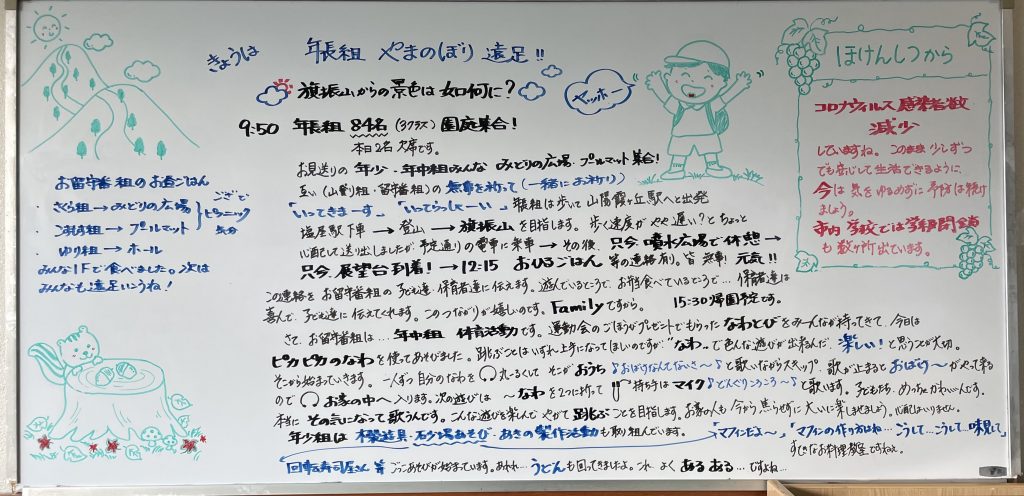 きょうは 年長組 やまのぼり 遠足!!
旗振山からの景色は如何に?
ヤッホー
9:50 年長組 84名 (3クラス) 園庭集合!
本日2名 欠席です。
お見送りの 年少・年中組みんな みどりの広場・プールマット集合!
互い(山登り組・留守番組)の 無事を祈って(一緒にお祈り)
「いってきまーす」「いってらっしゃーい」 年長組は歩いて 山陽霞ヶ丘駅へと出発
塩屋駅下車 → 登山 → 旗振山 を目指します。歩く速度が やや遅い?と ちょっと
心配して送り出しましたが 予定通りの電車に乗車 → その後、只今 噴水広場で休憩 →
只今、展望台到着! → 12:15 おひるごはん 等の連絡有り。皆 無事! 元気!!
この連絡を お留守番組の 子ども達・保育者達に伝えます。遊んでいるところで、お弁当食べているところで… 保育者達は
喜んで、子ども達に 伝えてくれます。このつながりが嬉しいのです。Familyですから。 15:30 帰園予定です。
さて、お留守番組は… 年中組 体育活動です。運動会のごほうびプレゼントでもらった なわとびを みーんなが持ってきて、今日は
ピカピカのなわ を使ってあそびました。跳ぶことはいずれ上手になってほしいのですが、"なわ" で色んな遊びが出来るんだ、楽しい! と思うことが大切。
そこから始まっていきます。一人ずつ自分のなわを 丸ーるくして そこが おうち ♪おばけなんてないさ〜♪ と歌いながらスキップ。歌が止まると おばけ〜 がやって来る
ので お家の中へ 入ります。次の遊びは 〜なわを2つに折って 持ち手は マイク ♪どんぐりころころ〜♪ と歌います。子どもたち、めっちゃかわいいんです。
本当に その気になって歌うんです。こんな遊びを楽しんで やがて 跳ぶことを目指します。お家の人も 今から 焦らずに 大いに楽しませましょう。心配はいりません。
年少組は 木製遊具・砂場あそび・あきの製作活動 も取り組んでいます。 「マフィンだよ〜」「マフィンの作り方はね…こうして…こうして…味見して」
すてきなお料理教室ですねぇ。
回転寿司屋さん 等 ごっこあそびが始まっています。あれれ… うどんも回ってきましたよ。これ、よく あるある… ですよね…
お留守番組のお昼ごはん
・さくら組 → みどりの広場
・こすもす組 → プールマット
・ゆり組 → ホール
ござで
ピクニック
気分
みんな1Fで食べました。次は
みんなも遠足にいこうね!
ほけんしつから
コロナウィルス 感染者数
減少
していますね。このまま 少しずつ
でも安心して生活できるように
今は 気をゆるめずに 予防は続け
ましょう。
市内 学校では学年閉鎖
も 数ヶ所出ています。